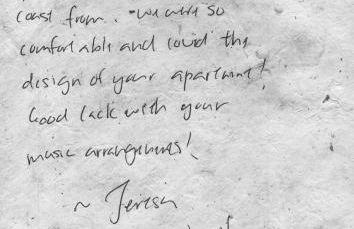 coast from. - we were so
comfortable and lovid the
design of your apartment!
Good lack with your
music arrangements!
~ Teresa